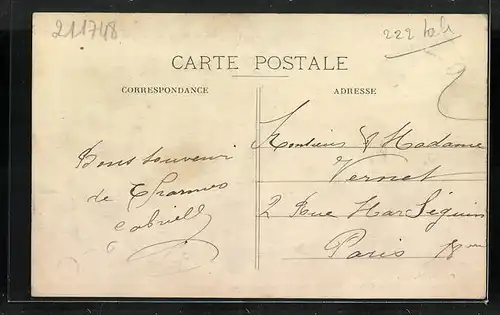 211748
222
CARTE POSTALE
CORRESPONDANCE
ADRESSE
Bons souvenir
de Charmes
Gabrielle
Monsieur & Madame
Vernet
2 Rue Marc Séguin
Paris 18